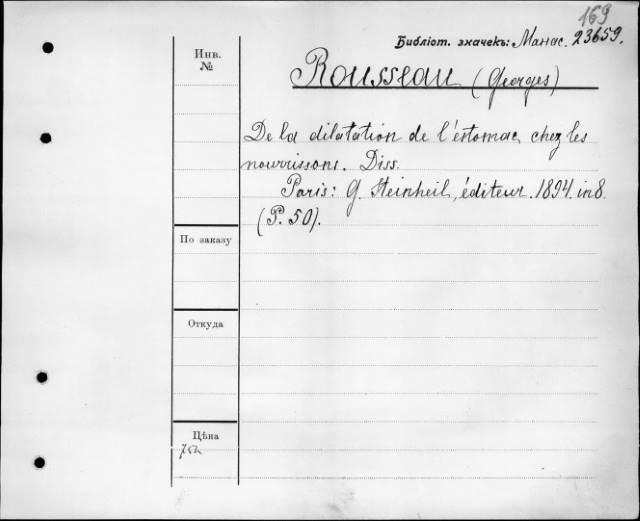 169
Библіот. значекъ: Манас. 23659.
Инв.
№
Rousseau (Georges)
De la dilatation de l'estomac chez les
nourrissons. Diss.
Paris: G. Steinheil, éditeur. 1894. in 8.
(P. 50).
По заказу
Откуда
Цѣна